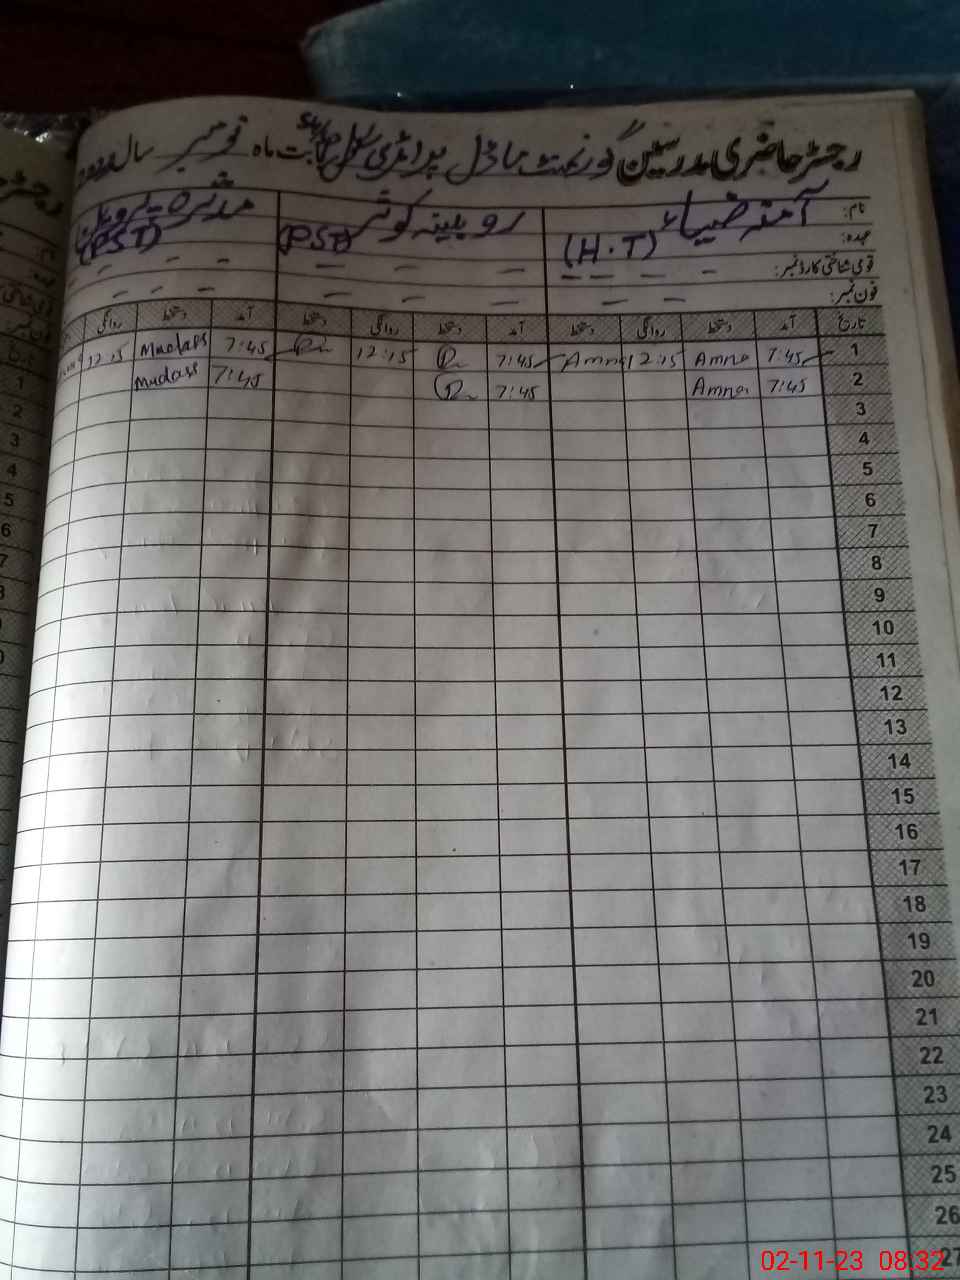 رجسٹر حاضری مدرسین گورنمنٹ ماڈل پرائمری سکول بابت ماہ نومبر سال
نام: آمنہ ضیاء روبینہ کوثر مدثرہ
عہدہ: (H.T) (PST) (PST)
قومی شناختی کارڈ نمبر: – – – – – – – – – –
فون نمبر: – – – – – – – –
تاریخ آمد دستخط روانگی دستخط آمد دستخط روانگی دستخط آمد دستخط روانگی
1 7:45 Amna 12:15 Amna 7:45 12:15 7:45 Mudass 12:15
2 7:45 Amna 7:45 7:45 Mudass
3
4
5
6
7
8
9
10
11
12
13
14
15
16
17
18
19
20
21
22
23
24
25
26
27
02-11-23 08:32